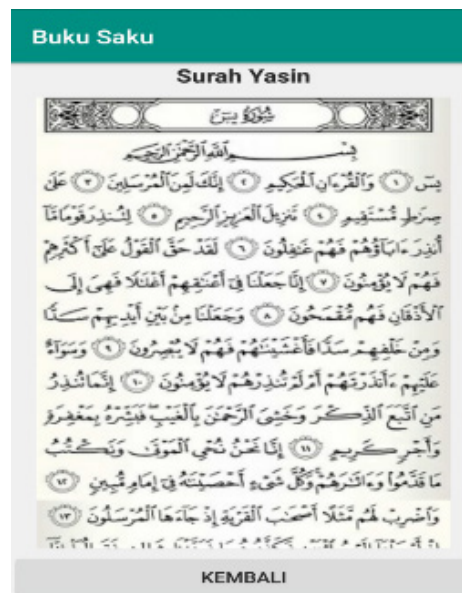 Buku Saku
Surah Yasin
سُورَةُ يسٓ
بِسْمِ اللَّهِ الرَّحْمَٰنِ الرَّحِيمِ
يسٓ ١ وَالْقُرْءَانِ الْحَكِيمِ ٢ إِنَّكَ لَمِنَ الْمُرْسَلِينَ ٣ عَلَىٰ
صِرَٰطٍ مُّسْتَقِيمٍ ٤ تَنزِيلَ الْعَزِيزِ الرَّحِيمِ ٥ لِتُنذِرَ قَوْمًا مَّا
أُنذِرَ ءَابَآؤُهُمْ فَهُمْ غَٰفِلُونَ ٦ لَقَدْ حَقَّ الْقَوْلُ عَلَىٰٓ أَكْثَرِهِمْ
فَهُمْ لَا يُؤْمِنُونَ ٧ إِنَّا جَعَلْنَا فِىٓ أَعْنَٰقِهِمْ أَغْلَٰلًا فَهِىَ إِلَى
الْأَذْقَانِ فَهُم مُّقْمَحُونَ ٨ وَجَعَلْنَا مِنۢ بَيْنِ أَيْدِيهِمْ سَدًّا
وَمِنْ خَلْفِهِمْ سَدًّا فَأَغْشَيْنَٰهُمْ فَهُمْ لَا يُبْصِرُونَ ٩ وَسَوَآءٌ
عَلَيْهِمْ ءَأَنذَرْتَهُمْ أَمْ لَمْ تُنذِرْهُمْ لَا يُؤْمِنُونَ ١٠ إِنَّمَا تُنذِرُ
مَنِ اتَّبَعَ الذِّكْرَ وَخَشِىَ الرَّحْمَٰنَ بِالْغَيْبِ فَبَشِّرْهُ بِمَغْفِرَةٍ
وَأَجْرٍ كَرِيمٍ ١١ إِنَّا نَحْنُ نُحْىِ الْمَوْتَىٰ وَنَكْتُبُ
مَا قَدَّمُوا وَءَاثَٰرَهُمْ وَكُلَّ شَىْءٍ أَحْصَيْنَٰهُ فِىٓ إِمَامٍ مُّبِينٍ ١٢
وَاضْرِبْ لَهُم مَّثَلًا أَصْحَٰبَ الْقَرْيَةِ إِذْ جَآءَهَا الْمُرْسَلُونَ ١٣
KEMBALI